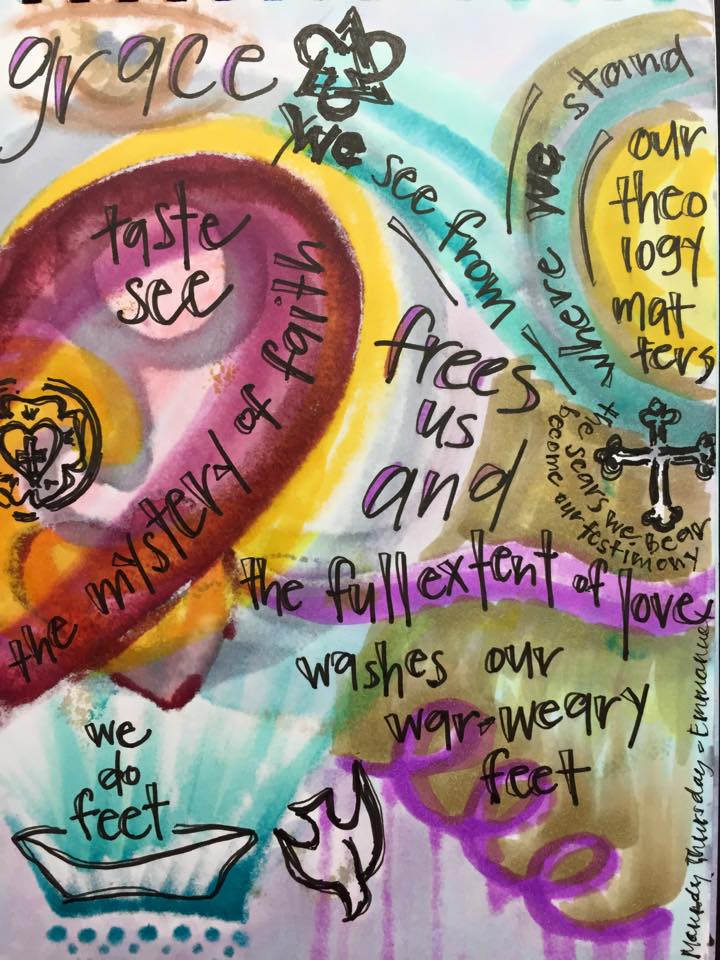 grace
we see from
where we stand
our
theo
logy
mat
ters
taste
see
the mystery of faith
frees
us
and
the scars we bear
become our testimony
the full extent of love
washes our
war-weary
feet
we
do
feet
Maundy Thursday - Emmanuel